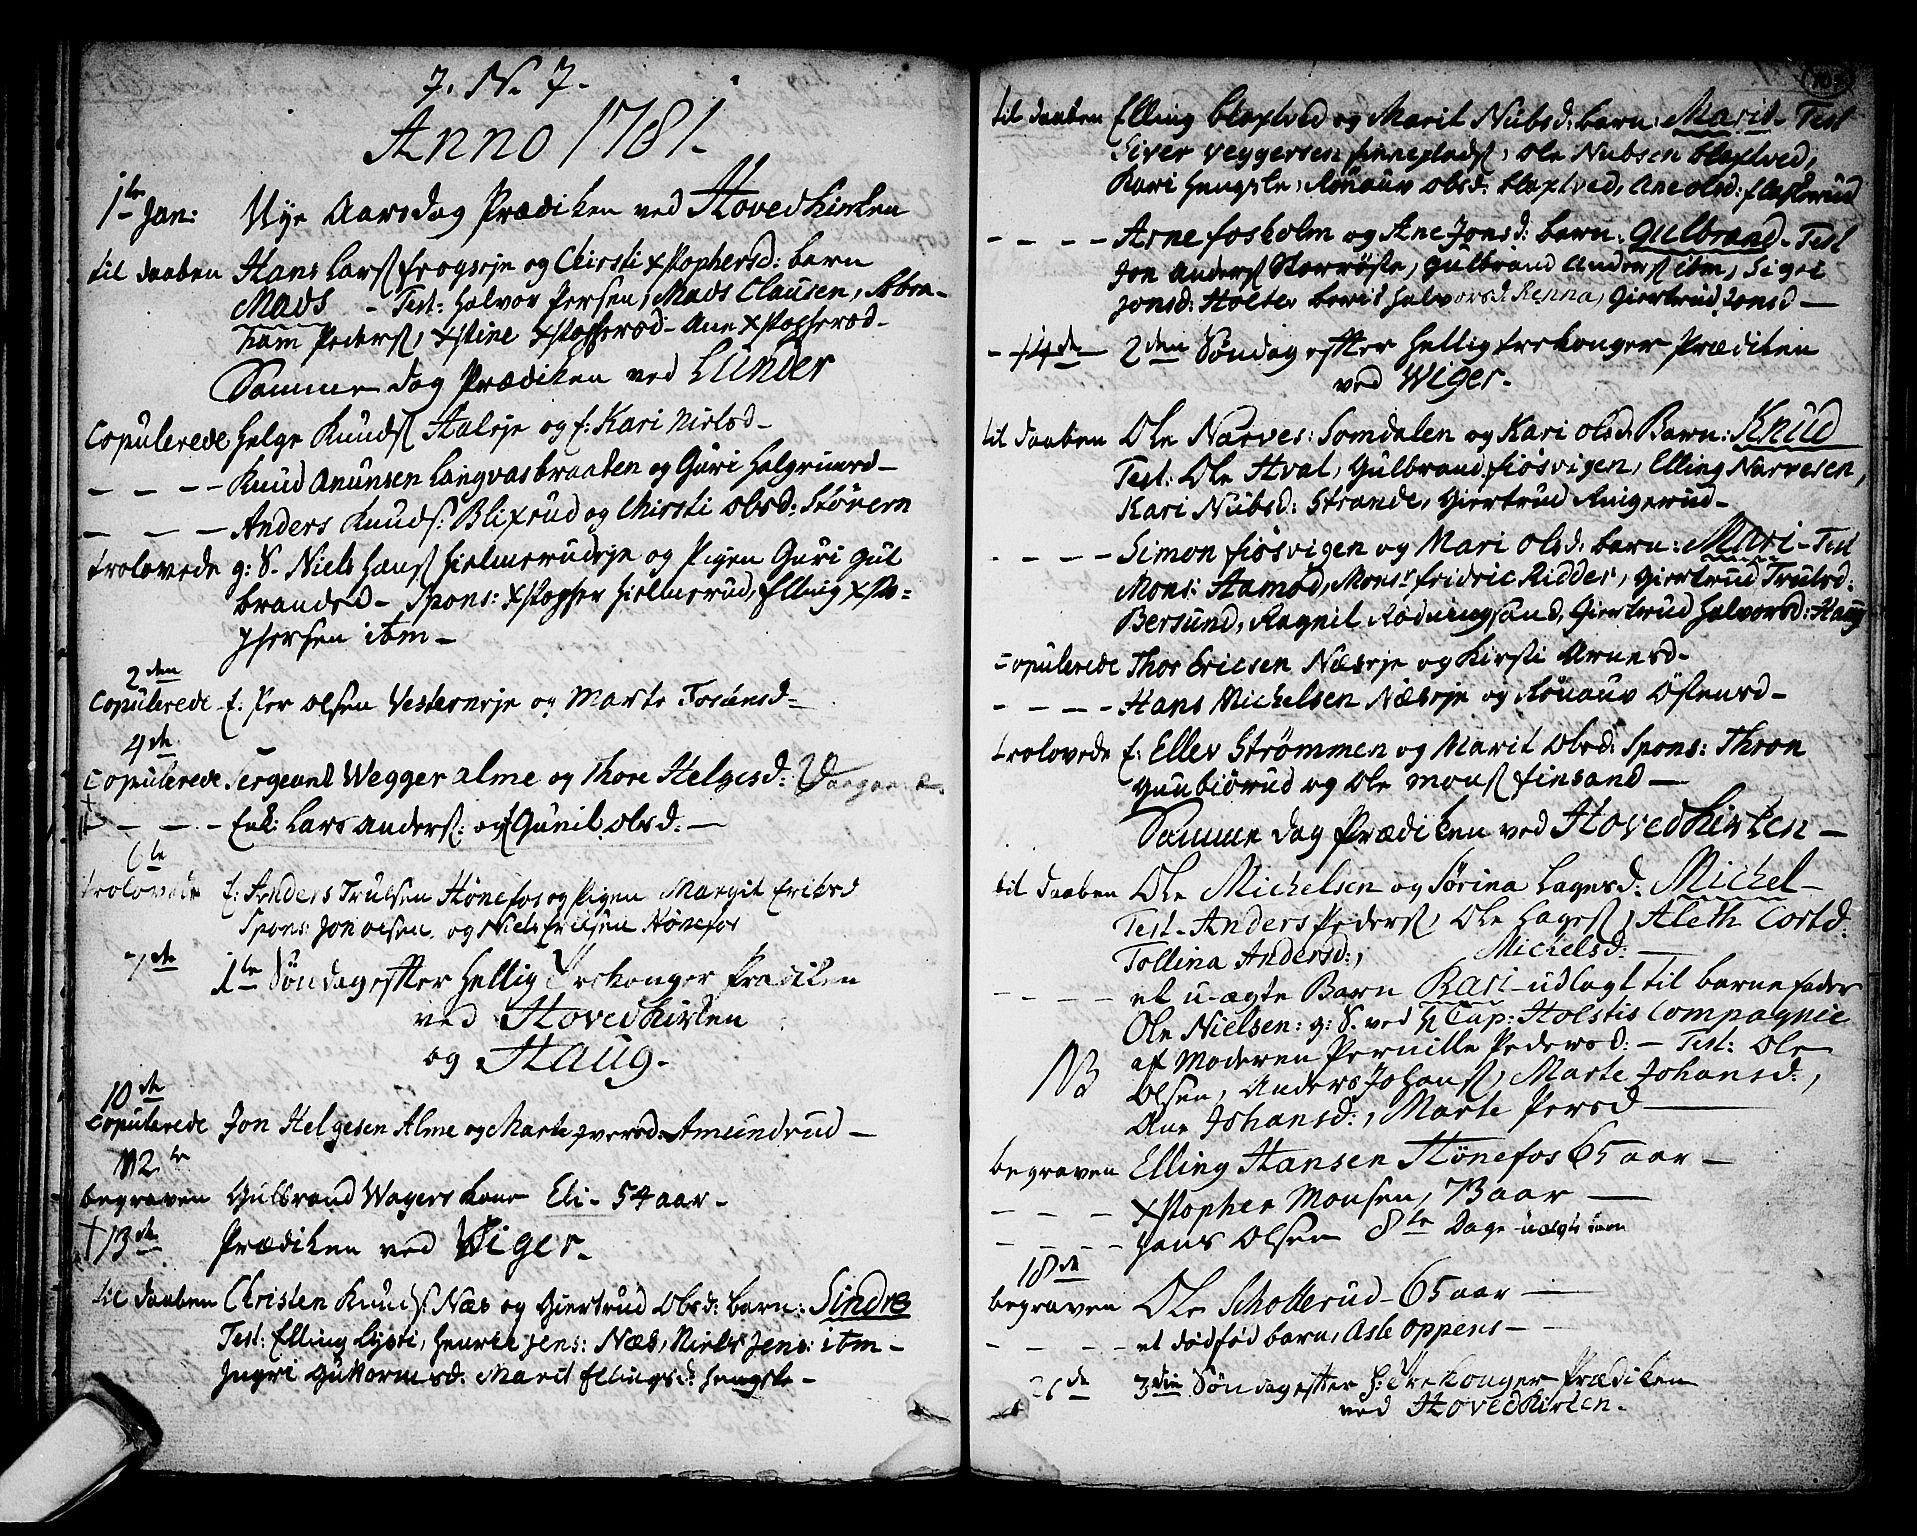 J. N. J.
Anno 1781.
1te Jan: Nye Aarsdag Prædiken ved Hovedkirken
til daaben Hans Lars: Frogeeje og Chirsti Xstophersd: barn
Mads - Test: Halvor Persen, Mads Clausen, Abra-
ham Peders, Xstine Xstophersd- Ane Xstophersd-
Samme dag Prædiken ved Lunder
Copulerede Helge Knuds Aaleje og f: Kari Nielsd-
- - - - Knud Anunsen Langvasbraaten og Guri Halgrimsd-
- - - Anders Knuds: Blixrud og Chirsti Olsd: Støvern
trolovede g: S. Niels Hans Hielmerudeje og Pigen Guri Gul
brandsd- Spons: Xstopher Hielmerud, Elling Xsto-
phersen ibm-
2den
Copulerede f: Per Olsen Vesterneje og Marte Tostensd-
4de
Copulerede Sergeant Wegger Alme og Thore Helgesd:
- - - Enk: Lars Anders: og Gunil Olsd: -
6te
trolovede f: Anders Trulsen Hønefos og Pigen Margit Eriksd
Spons: Jon Olsen og Niels Erilsen Hønefos
7de 1te Søndag efter Hellig Trekonger Prædiken
ved Hovedkirken
og Haug.
10de
Copulerede Jon Helgesen Alme og Marte Iversd: Amundrud -
12te
begraven Gulbrand Wagers kone Eli - 54 aar-
†13de Prædiken ved Wiger-
til daaben Christen Knuds Næs og Giertrud Olsd: barn: Sindre
Test: Elling Lysti, Henrik Jens: Næs, Niels Jens: ibm-
Ingri Gutormsd: Marit Ellingsd: Hengsle-
til daaben Elling Claxtved og Marit Nubsd: barn: Marit- Test
Siver Veggersen Finneplads, Ole Nubsen Claxtved,
Kari Hengsle, Rønauv Olsd: Claxtved, Ane Olsd: Flaskerud
- - - - Arne Foskolm og Ane Jonsd: barn: Gulbrand- Test
Jon Anders Storrøste, Gulbrand Anders ibm, Sigri
Jonsd: Holter Berit Halvorsd: Renna, Giertrud Jonsd-
- 14de 2den Søndag efter Hellig trekonger Prædiken
ved Wiger.
til daaben Ole Narves: Somdalen og Kari Olsd: Barn: Knud
Test: Ole Hval, Gulbrand Fiøsvigen, Elling Narvesen,
Kari Nubsd: Strande, Giertrud Ringerud-
- - - - Simon Fiøsvigen og Mari Olsd: barn: Mari- Test
Mons: Aamod, Monsr Fridric Ridder, Giertrud Trulsd:
Bersund, Ragnil Rodningsand, Giertrud Halvorsd: Haug
Copulerede Thor Ericsen Næseje og Kirsti Arnesd-
- - - - Hans Michelsen Næseje og Rønauv Østensd-
trolovede f: Ellev Strømmen og Marit Olsd: Spons: Thron
Gunbiørud og Ole Mons Finsand-
Samme dag Prædiken ved Hovedkirken-
til daaben Ole Michelsen og Sørina Lagesd: Michel-
Test- Anders Peders, Ole Lages, Aleth Cortsd:
Tollina Andersd:, Michelsd: -
- - - - et u-ægte Barn Kari udlagt til barnefader
Ole Nielsen: g: S. ved Cap: Holstis Compagnie
af Moderen Pernille Pedersd: - Test: Ole
NB Olsen, Anders Johans, Marte Johansd:,
Ane Johansd:, Marte Persd-
begraven Elling Hansen Hønefos 65 aar-
- - - Xstopher Monsen, 73 aar-
- - - Hans Olsen 8te Dage uægte
18de
begraven Ole Schollerud- 65 aar-
- - - - et dødfød barn, Asle Oppens-
21de 3die Søndag efter H: Trekonger Prædiken
ved Hovedkirken.